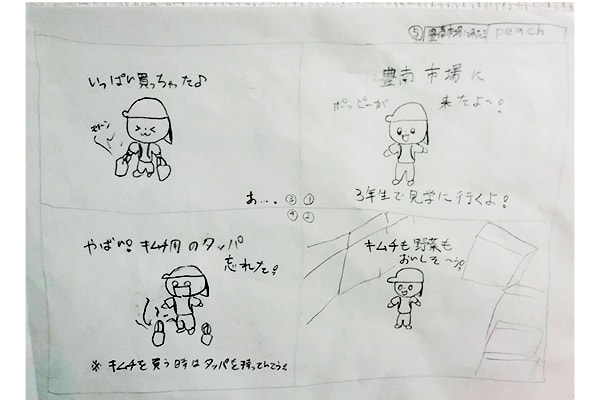 ⑤ 豊南市場 peach
①
豊南市場に
ポッピーが 来たよ〜!
3年生で見学に行くよ!
②
キムチも野菜も
おいしそ〜う!
③
いっぱい買っちゃった♪
あ…。
④
やばい! キムチ用のタッパ
忘れた!
※ キムチを買う時はタッパを持っていこうね